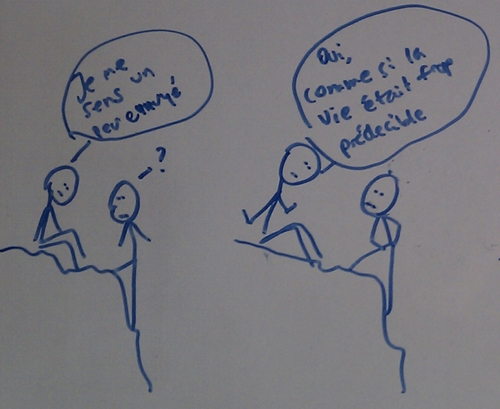 Je me
sens un
peu ennuyé
?
Oui,
comme si la
vie était trop
prédecible